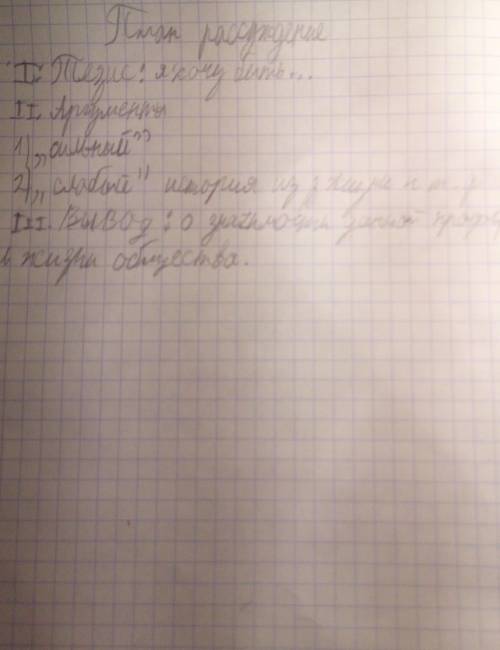 План рассуждение
I. Тезис: я хочу быть...
II Аргументы
1) "сильный"
2) "слабый" история из жизни и т. д
III. Вывод: о значимости данной профе
в жизни общества.